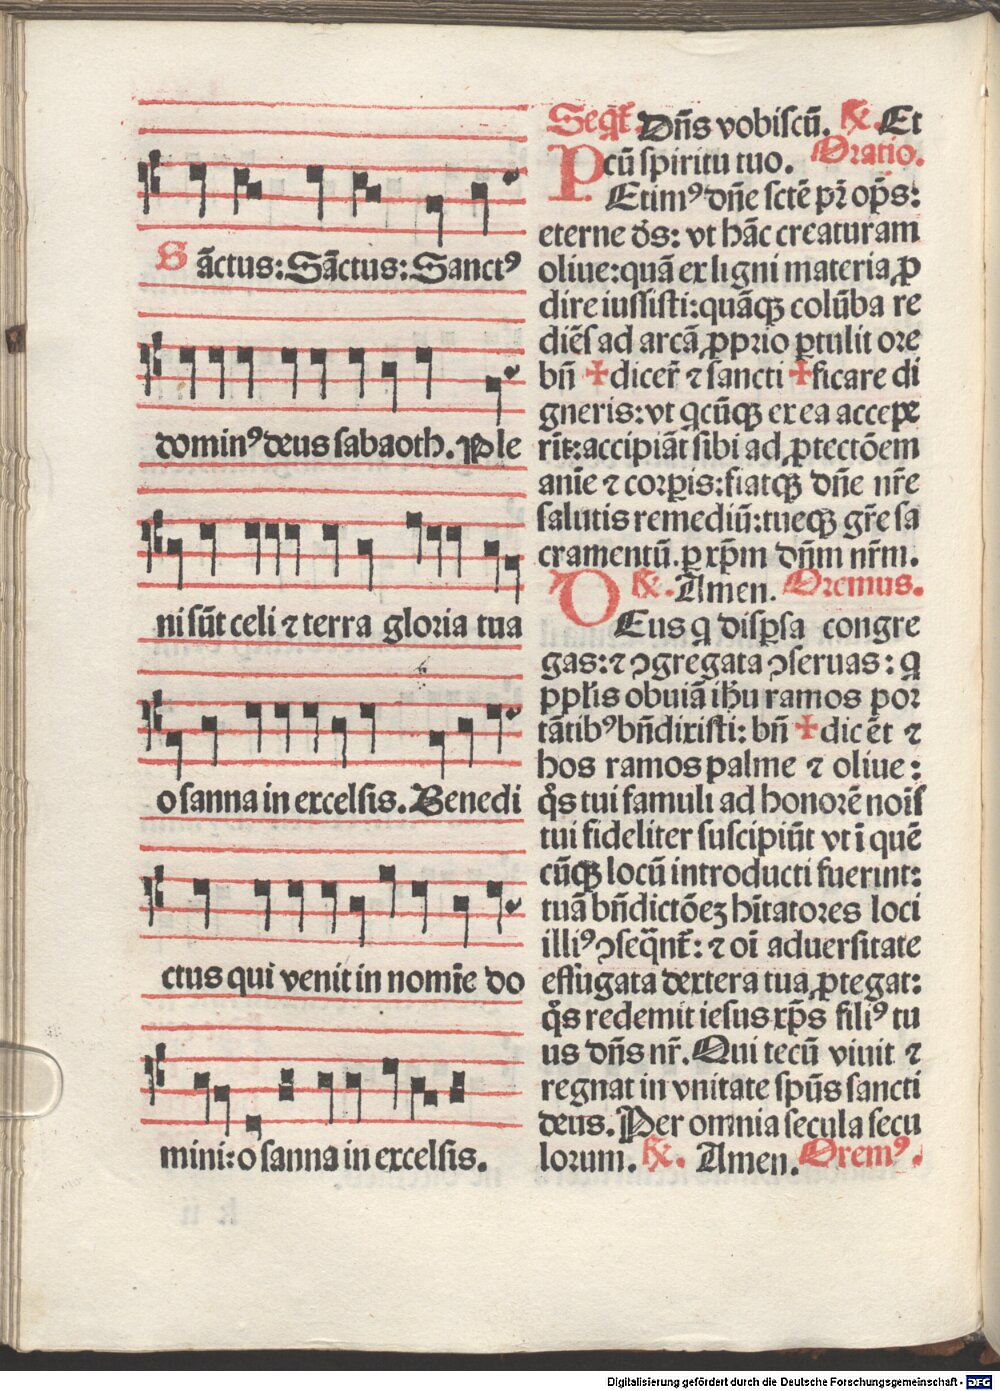 Sāctus: Sāctus: Sanctꝰ
dominꝰ deus sabaoth. Ple
ni sūt celi ⁊ terra gloria tua
osanna in excelsis. Benedi
ctus qui venit in nomīe do
mini: osanna in excelsis.
Seqr̄. Dn̄s vobiscū. ℟. Et
cū spiritu tuo. Oratio.
PEtimꝰ dn̄e sctē pr̄ op̄s:
eterne d̄s: vt hāc creaturam
oliue: quā ex ligni materia ꝓ
dire iussisti: quāqꝫ colūba re
diēs ad arcā ꝓprio ꝑtulit ore
bn̄ ✠ dicer̄ ⁊ sancti ✠ ficare di
gneris: vt qcūqꝫ ex ea accepe
rīt: accipiāt sibi ad ꝓtectōem
anīe ⁊ corꝑis: fiatqꝫ dn̄e nr̄e
salutis remediū: tueqꝫ gr̄e sa
cramentū. ꝑ xp̄m dn̄m nr̄m.
℟. Amen. Oremus.
DEus q disꝑsa congre
gas: ⁊ ꝯgregata ꝯseruas: q
ppl̄is obuiā ih̄u ramos por
tātibꝰ bn̄dixisti: bn̄ ✠ dic et ⁊
hos ramos palme ⁊ oliue:
q̄s tui famuli ad honorē noīs
tui fideliter suscipiūt vt ī quē
cūqꝫ locū introducti fuerint:
tuā bn̄dictōeꝫ hītatores loci
illiꝰ ꝯseqn̄t̄: ⁊ oī aduersitate
effugata dextera tua ꝓtegat:
q̄s redemit iesus xp̄s filiꝰ tu
us dn̄s nr̄. Qui tecū viuit ⁊
regnat in vnitate sp̄us sancti
deus. Per omnia secula secu
lorum. ℟. Amen. Oremꝰ.
Digitalisierung gefördert durch die Deutsche Forschungsgemeinschaft - DFG